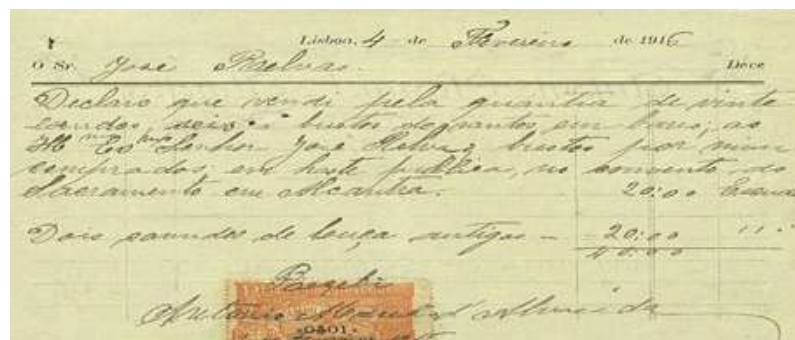 Lisboa, 4 de Fevereiro de 1916
O Sr. José Raelvas. Deve
Declaro que vendi pela quantia de vinte
escudos, seis bustos de santos em barro, ao
Illmo Exmo Senhor José Relvas, bustos por mim
comprados, em haste publica, no convento do
Sacramento em Alcantra. 20:00 Escudos
Dois canudos de louça antigos — 20:00 " "
40:00
Recebi
Antonio Manuel Almeida
0$01